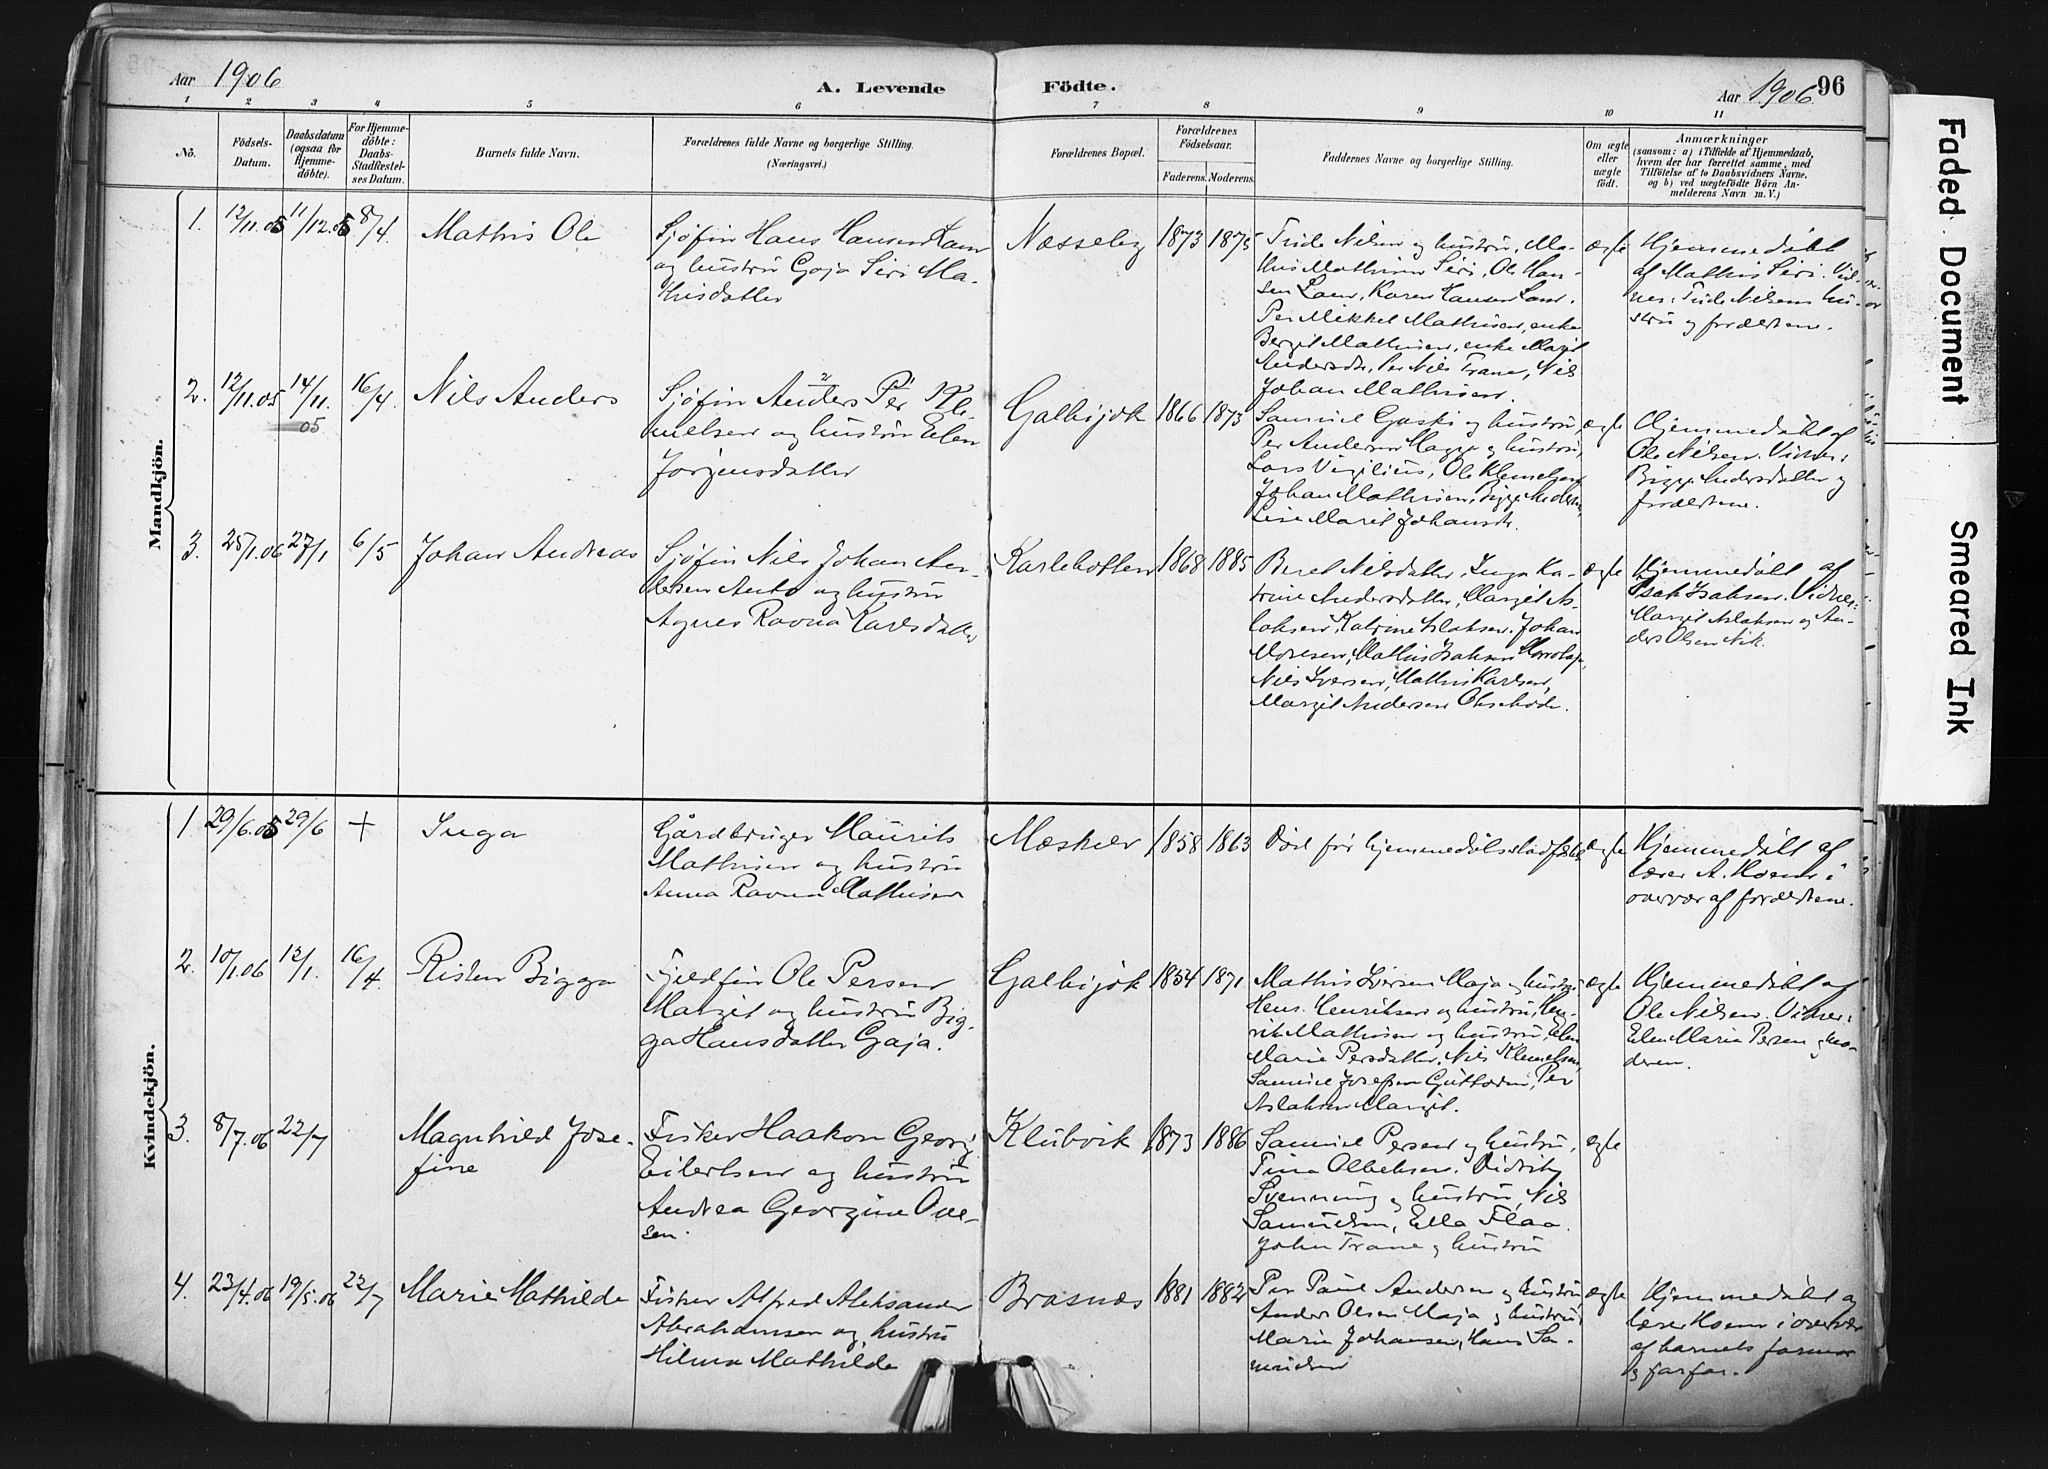 Aar 1906
A. Levende Födte.
Aar 1906.
96
1 2 3 4 5 6 7 8 9 10 11
No.
Födsels-
Datum.
Daabsdatum
(ogsaa for
Hjemme-
döbte).
For Hjemme-
döbte:
Daabs-
Stadfæstel-
ses Datum.
Barnets fulde Navn.
Forældrenes fulde Navne og borgerlige Stilling.
(Næringsvei.)
Forældrenes Bopæl.
Forældrenes
Födselsaar.
Faderens. Moderens.
Faddernes Navne og borgerlige Stilling.
Om ægte
eller
uægte
födt.
Anmærkninger
(saasom: a) i Tilfælde af Hjemmedaab,
hvem der har forrettet samme, med
Tilföielse af to Daabsvidners Navne,
og b) ved uægtefödte Börn An-
melderens Navn m. V.)
Mandkjön.
1. 12/11.05 11/12.05 8/4. Mathis Ole
Sjøfin Hans Hansen
og hustru Gaja Siri Ma-
thisdatter
Næsseby 1873 1875
Nilsen og hustru, Ma-
this Mathisen Siri, Ole Han-
sen, Karen Hansen
Per Mikkel Mathisen, enke
Berget Mathisen, enke Margit
Andersdtr, Per Nils Trane, Nils
Johan Mathisen.
ægte
Hjemmedøbt
af Mathis Siri. Vid-
ner: Nilsens hu-
stru og forældrene.
2. 12/11.05 14/11.05 16/4. Nils Anders
Sjøfin Anders Per Kle-
metsen og hustru Elen
Jørgensdatter
Galbijok 1866 1873
Samuel Gaski og hustru
Per Andersen og hustru,
Lars Virgilius, Ole Klemetsen
Johan Mathisen, Andersen
Lise Marit Johansdtr.
ægte
Hjemmedøbt af
Ole Nilsen. Vidner:
Bigga Andersdatter og
forældrene.
3. 25/1.06 27/1 6/5 Johan Andreas
Sjøfin Nils Johan An-
dersen Anto og hustru
Agnes Ravna Karlsdatter
Karlebotten 1868 1885
Beret Nilsdatter, Inga Ka-
trine Andersdatter, Margit As-
laksen, Katrine Aslaksen, Johan
Mosesen, Mathis Isaksen
Nils Iversen, Mathis Karlsen,
Margit Andersen
ægte
Hjemmedøbt af
Isak Isaksen. Vidner:
Margit Aslaksen og An-
ders Olsen Nik.
Kvindekjön.
1 29/6.05 29/6 + Inga
Gårdbruger Maurits
Mathisen og hustru
Anna Ravna Mathisen
Mæskelv 1858 1863
Død før hjemmedåbsstadfæst.
ægte
Hjemmedøbt af
lærer A. Hoem i
overvær af forældrene.
2. 10/1.06 12/1. 16/4. Risten Bigga
Fjeldfin Ole Persen
Margit og hustru Big-
ga Hansdatter Gaja.
Galbijok 1854 1871
Mathis Iversen Maja og hustru
Hans Henriksen og hustru, Hen-
rik Mathisen og hustru, Elen
Marie Persdatter, Nils Klemetsen,
Samuel Josefsen Guttorm, Per
Aslaksen Margit.
ægte
Hjemmedøbt af
Ole Nilsen. Vidner:
Elen Marie Persen og mo-
deren.
3. 8/7.06 22/7 Magnhild Jose-
fine
Fisker Haakon Georg
Eilertsen og hustru
Andrea Georgine Ove-
sen.
Klubvik 1873 1886
Samuel Persen og hustru,
Tina Olbeksen. Didrik
Svenning og hustru, Nils
Samuelsen, Ella Flaa.
John Trane og hustru
ægte
4. 23/4.06 19/5.06 22/7 Marie Mathilde
Fisker Alfred Aleksander
Abrahamsen og hustru
Hilma Mathilde
Brasnæs 1881 1882
Per Paul Andersen og hustru
Anders Olsen Maja og hustru,
Marie Johansen, Hans Sa-
muelsen
ægte
Hjemmedøbt af
lærer Hoem i overvær
af barnets farmor
og farfar.
Faded Document
Smeared Ink